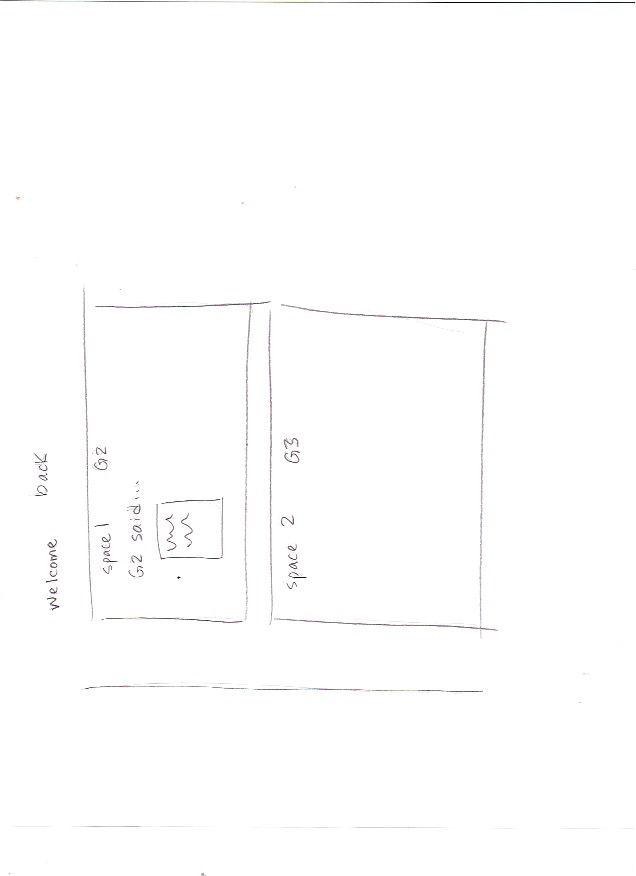 Welcome back
space 1 G2
G2 said...
space 2 G3